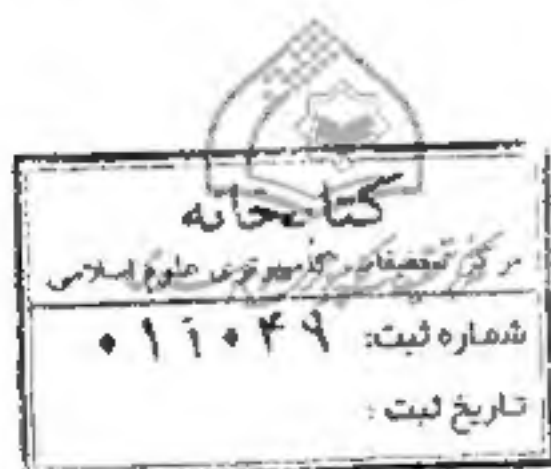 کتابخانه
مرکز تحقیقات کامپیوتری علوم اسلامی
شماره ثبت:
تاریخ ثبت :